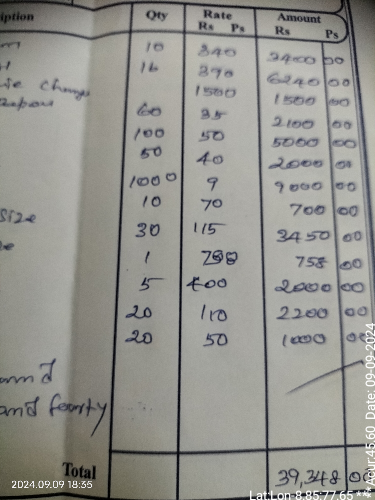 iption Qty Rate Amount
Rs Ps Rs Ps
10 340 3400 00
16 390 6240 00
1500 1500 00
60 35 2100 00
100 50 5000 00
50 40 2000 00
1000 9 9000 00
10 70 700 00
size 30 115 3450 00
1 758 758 00
5 400 2000 00
20 110 2200 00
20 50 1000 00
and
Total 39,348 00
2024.09.09 18:35
Lat:Lon 8.85:77.65 **
Acur:45.60 Date: 09-09-2024